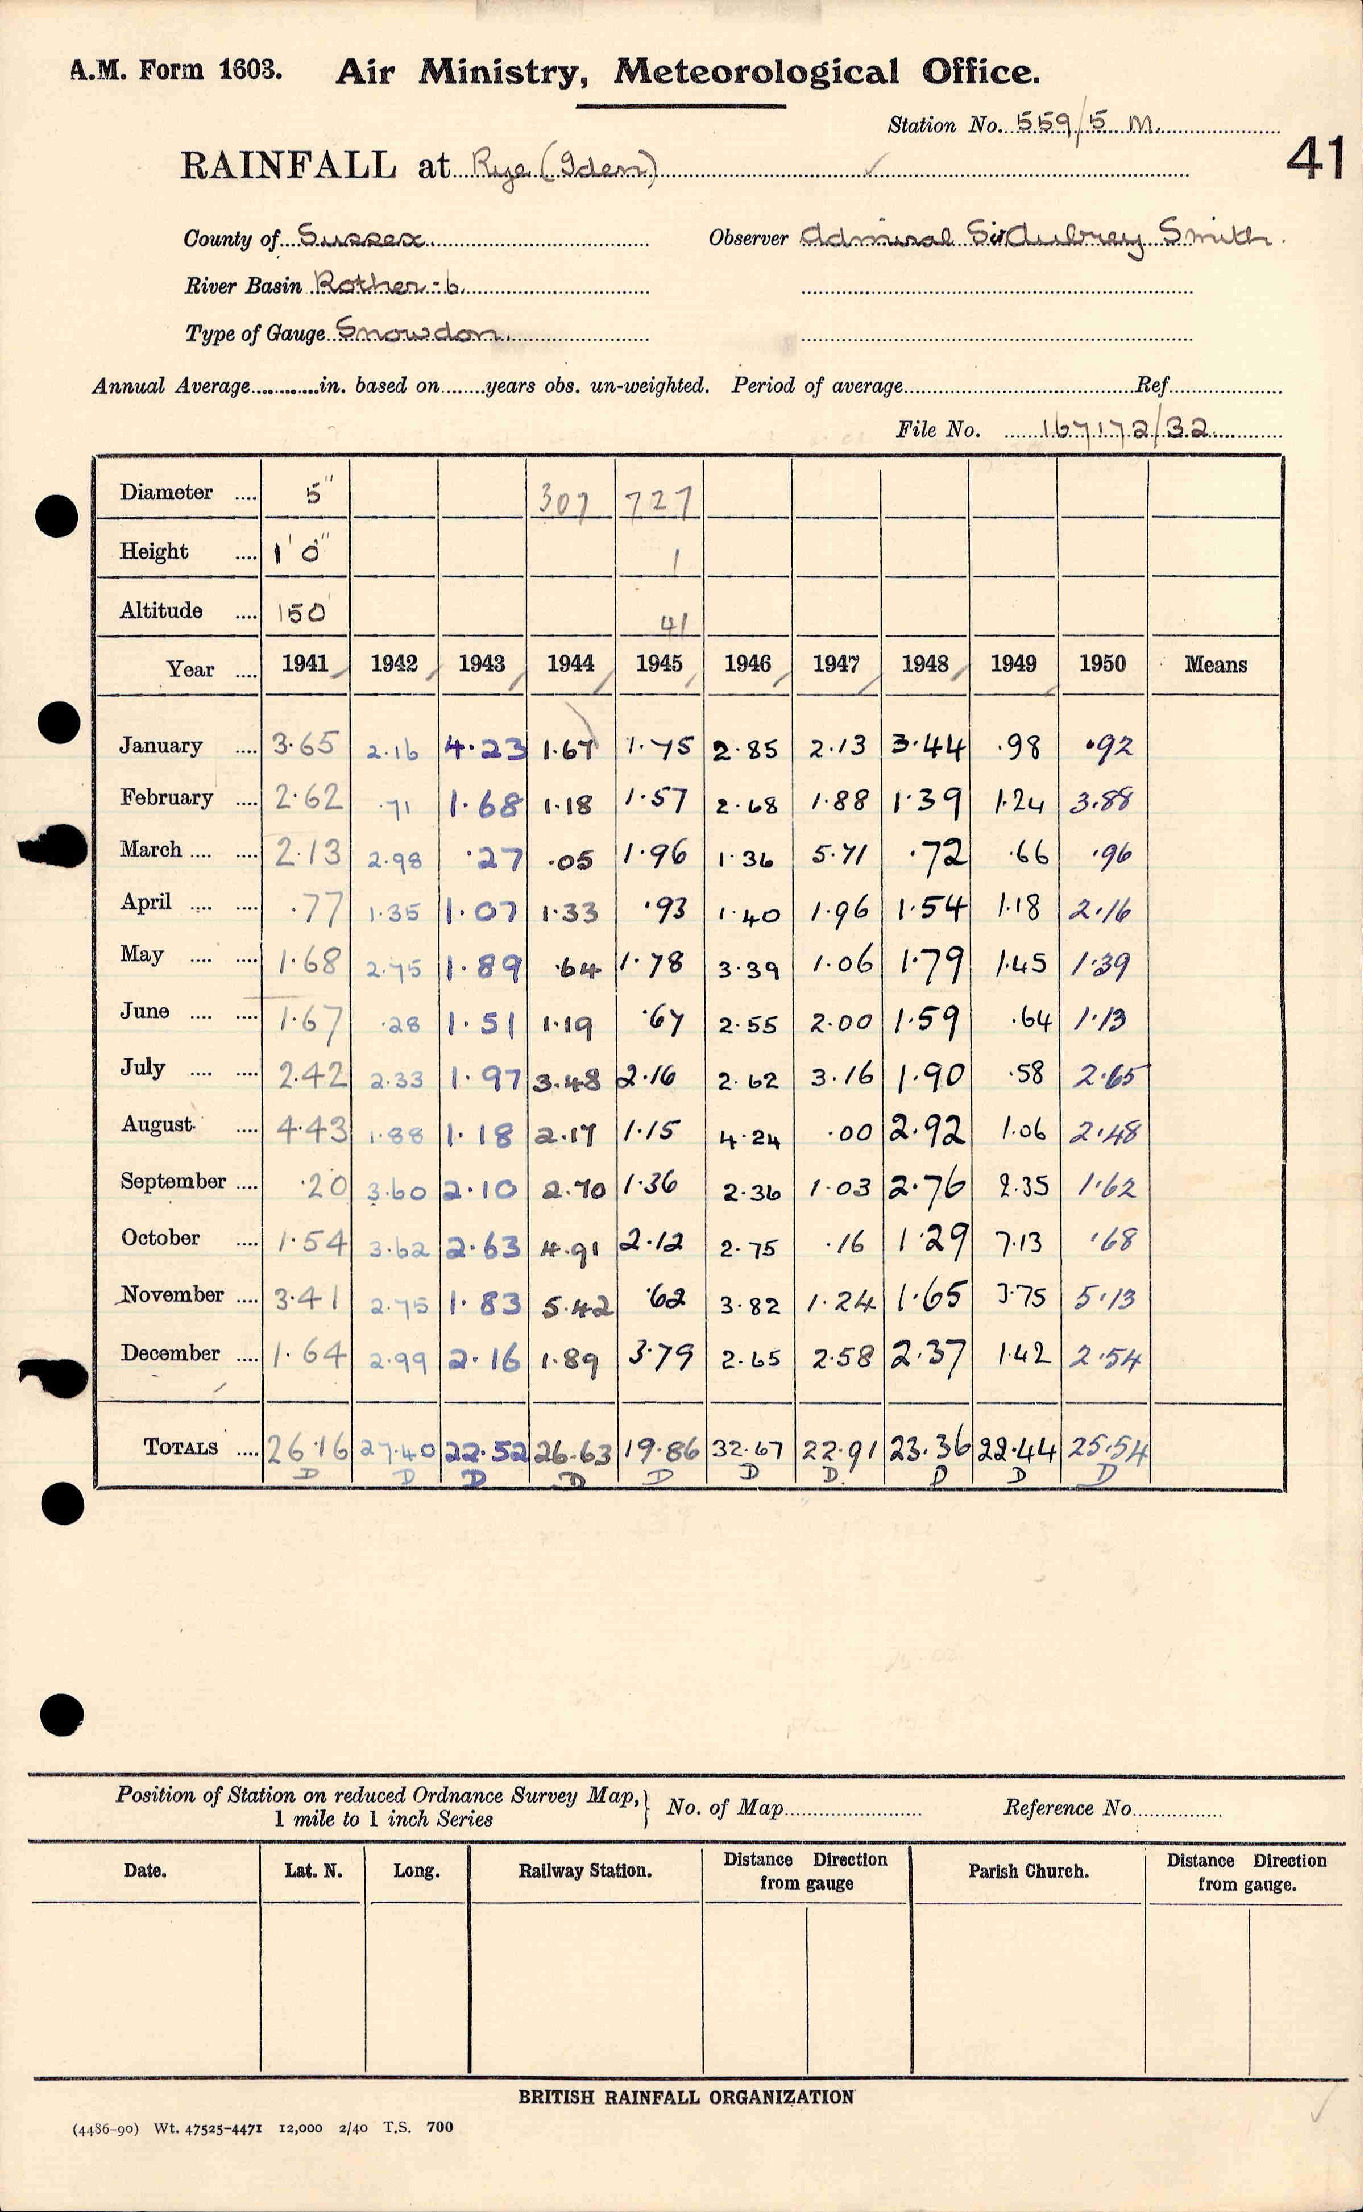 A.M. Form 1603. Air Ministry, Meteorological Office.
Station No. 559/5 M.
41
RAINFALL at Rye (Iden)
County of Sussex Observer Admiral Sir Aubrey Smith.
River Basin Rother - 6
Type of Gauge Snowdon
Annual Average............in. based on........years obs. un-weighted. Period of average........Ref........
File No. 167172/32
Diameter .... 5" 307 727
Height .... 1' 0" 1
Altitude .... 150 41
Year .... 1941 1942 1943 1944 1945 1946 1947 1948 1949 1950 Means
January .... 3.65 2.16 4.23 1.67 1.75 2.85 2.13 3.44 .98 .92
February .... 2.62 .71 1.68 1.18 1.57 2.68 1.88 1.39 1.24 3.88
March .... .... 2.13 2.98 .27 .05 1.96 1.36 5.71 .72 .66 .96
April .... .... .77 1.35 1.07 1.33 .93 1.40 1.96 1.54 1.18 2.16
May .... .... 1.68 2.75 1.89 .64 1.78 3.39 1.06 1.79 1.45 1.39
June .... .... 1.67 .28 1.51 1.19 .67 2.55 2.00 1.59 .64 1.13
July .... .... 2.42 2.33 1.97 3.48 2.16 2.62 3.16 1.90 .58 2.65
August .... 4.43 1.88 1.18 2.17 1.15 4.24 .00 2.92 1.06 2.48
September .... .20 3.60 2.10 2.70 1.36 2.36 1.03 2.76 2.35 1.62
October .... 1.54 3.62 2.63 4.91 2.12 2.75 .16 1.29 7.13 .68
November .... 3.41 2.75 1.83 5.42 .62 3.82 1.24 1.65 3.75 5.13
December .... 1.64 2.99 2.16 1.89 3.79 2.65 2.58 2.37 1.42 2.54
TOTALS .... 26.16 27.40 22.52 26.63 19.86 32.67 22.91 23.36 22.44 25.54
D D D D D D D D D D
Position of Station on reduced Ordnance Survey Map, } No. of Map........ Reference No........
1 mile to 1 inch Series
Date. Lat. N. Long. Railway Station. Distance Direction from gauge Parish Church. Distance Direction from gauge.
BRITISH RAINFALL ORGANIZATION
(4486-90) Wt. 47525-4471 12,000 2/40 T.S. 700